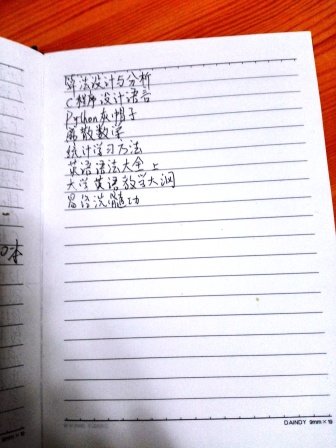 算法设计与分析
C程序设计语言
Python灰帽子
离散数学
统计学习方法
英语语法大全上
大学英语教学大纲
易筋洗髓功
本
DAINDY 9mm×